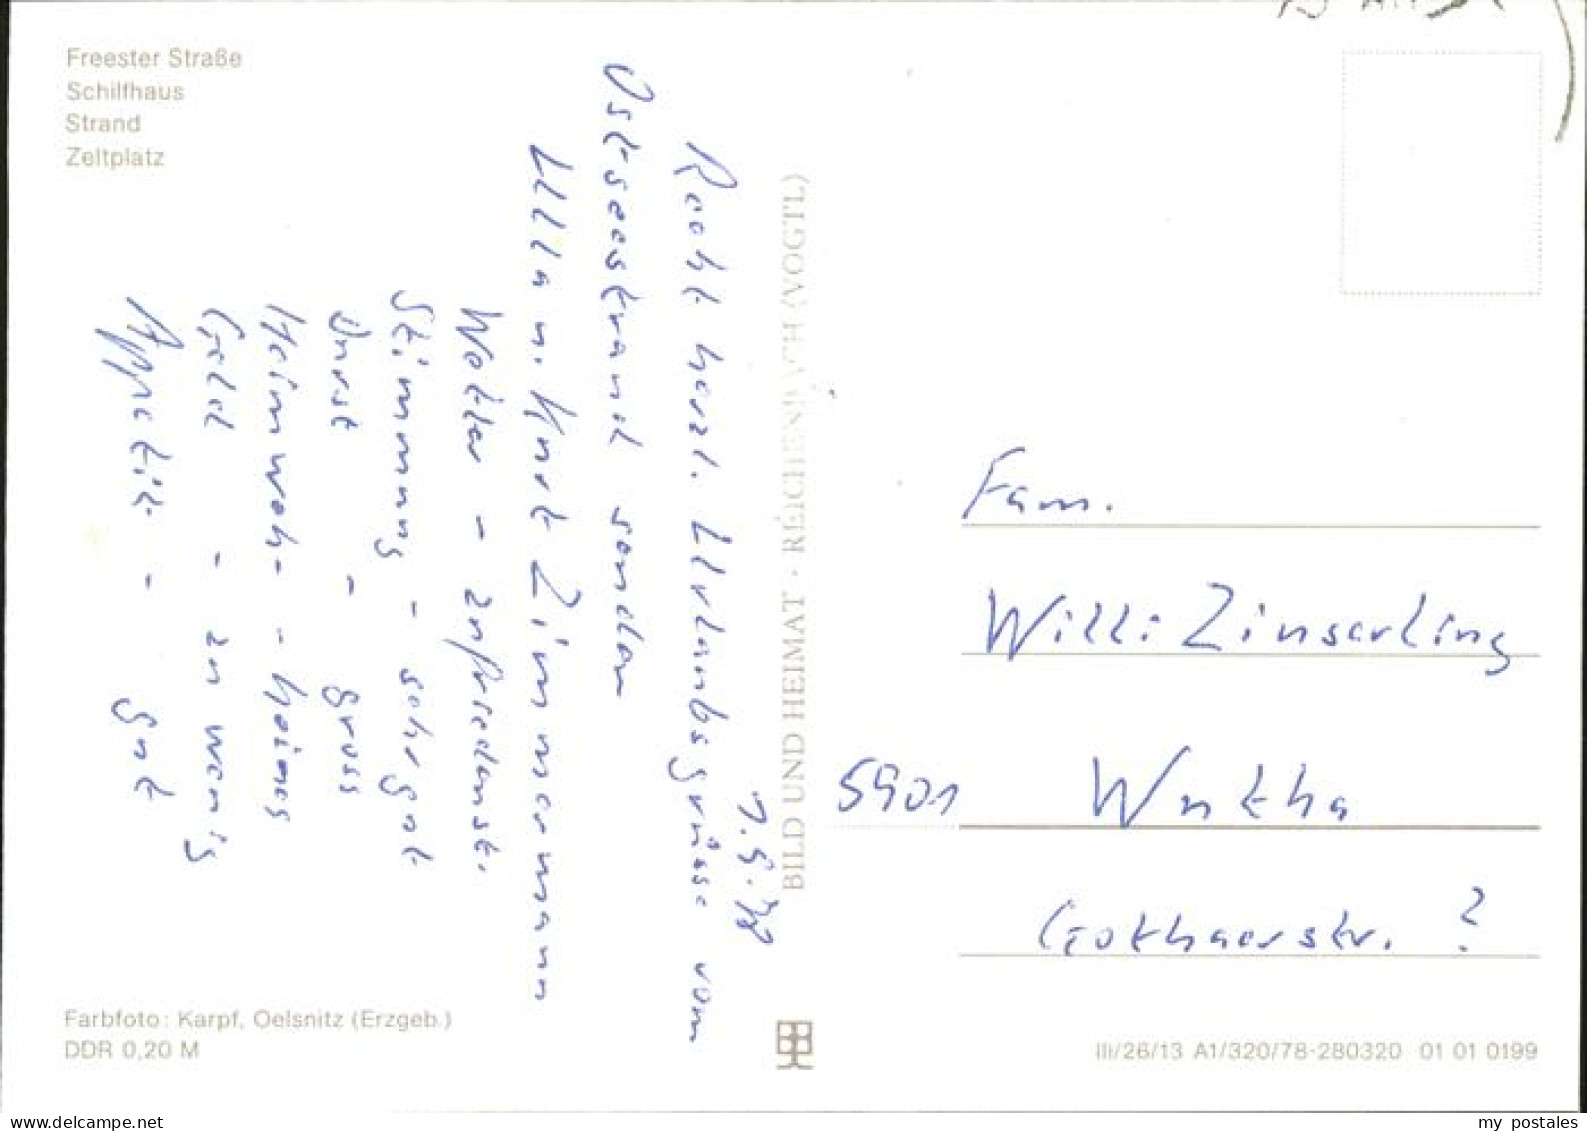 Freester Straße
Schilfhaus
Strand
Zeltplatz
7.9.78
Recht herzl. Urlaubsgrüsse vom
Ostseestrand senden
Ulla u. Kurt Zimmermann
Wetter - zufriedenst.
Stimmung - sehr gut
Durst - gross
Heimweh - keines
Geld - zu wenig
Appetit - gut
BILD UND HEIMAT · REICHENBACH (VOGTL)
Fam.
Willi Zinserling
5901 Wutha
Gothaerstr. 2
Farbfoto: Karpf, Oelsnitz (Erzgeb.)
DDR 0,20 M
III/26/13 A1/320/78-280320 01 01 0199
delcampe.net
my_postales